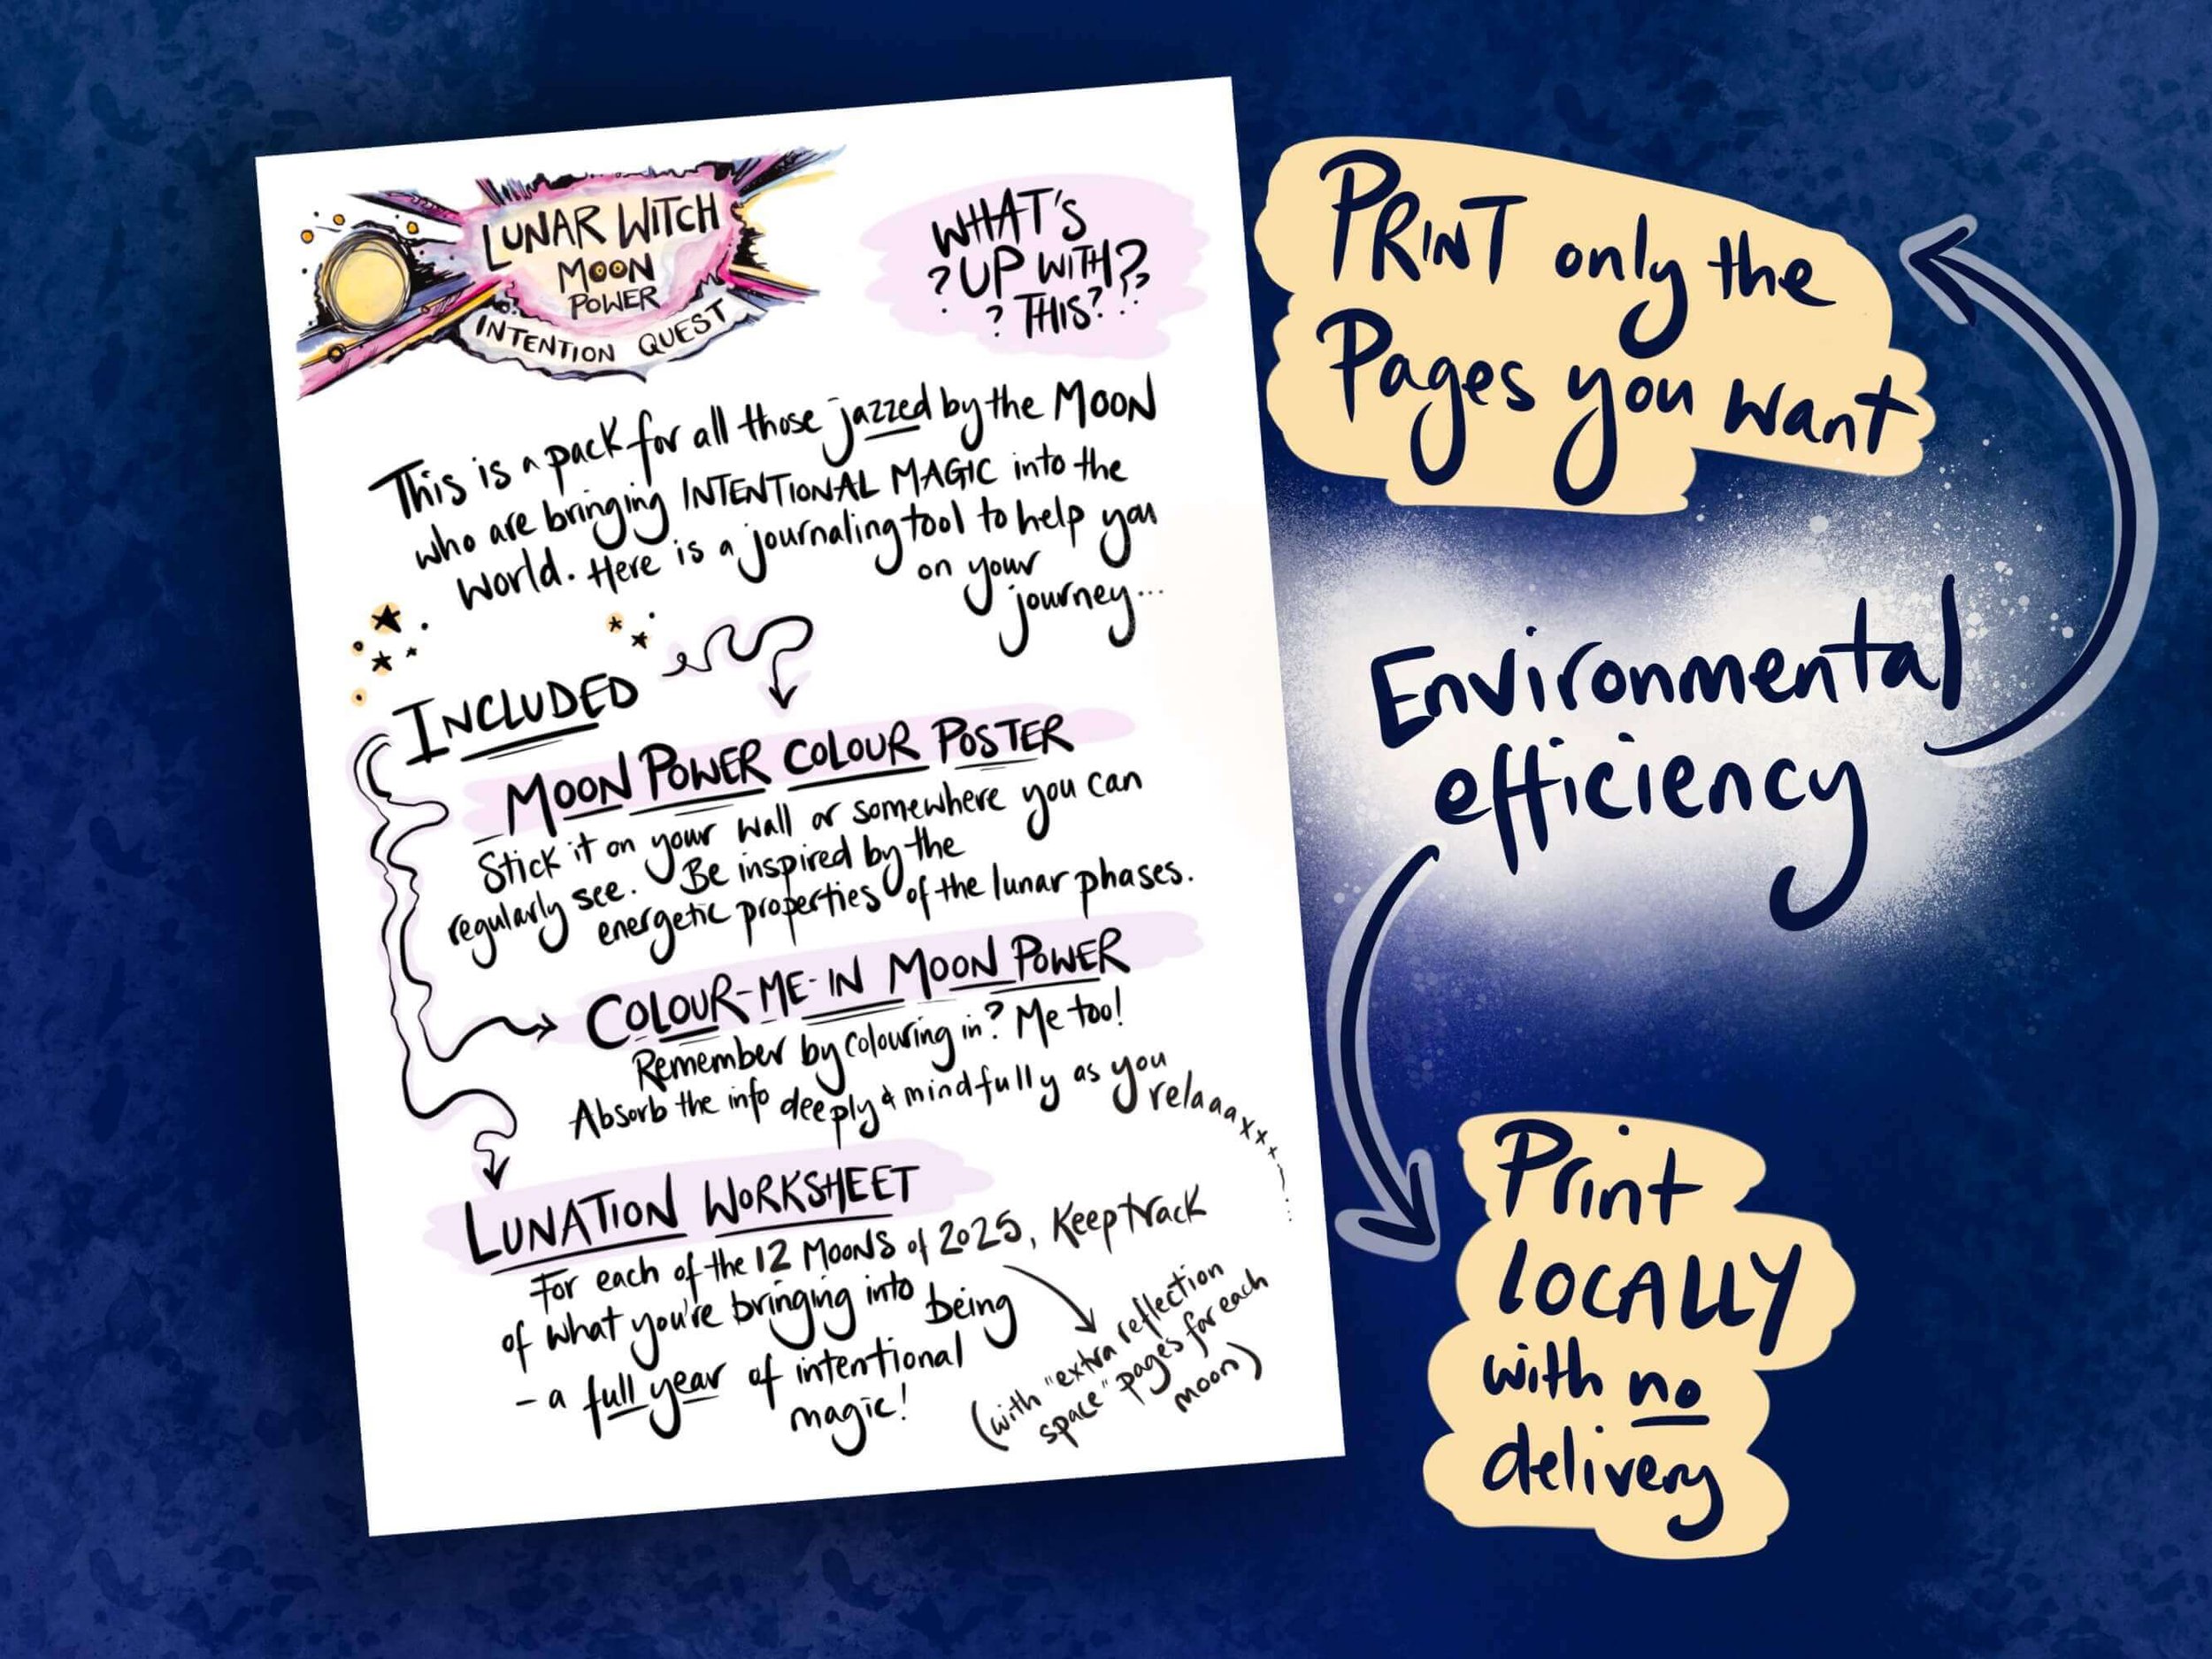 LUNAR WITCH
MOON
POWER
INTENTION QUEST
WHAT'S
? UP WITH?
? THIS? ??
This is a pack for all those jazzed by the MOON
who are bringing INTENTIONAL MAGIC into the
world. Here is a journaling tool to help you
on your
journey...
INCLUDED
MOON POWER COLOUR POSTER
Stick it on your wall or somewhere you can
regularly see. Be inspired by the
energetic properties of the lunar phases.
COLOUR-ME-IN MOON POWER
Remember by colouring in? Me too!
Absorb the info deeply & mindfully as you
relaaaxxx....
LUNATION WORKSHEET
For each of the 12 MOONS of 2025, Keep track
of what you're bringing into being
- a full year of intentional
magic!
(with "extra reflection
space" pages for each
moon)
PRINT only the
Pages you want
Environmental
efficiency
Print
LOCALLY
with no
delivery